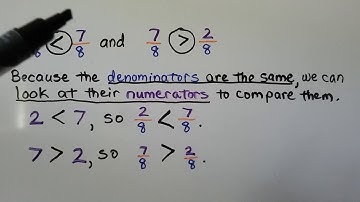 /8 < 7/8 and 7/8 > 2/8
Because the denominators are the same, we can
look at their numerators to compare them.
2 < 7, so 2/8 < 7/8.
7 > 2, so 7/8 > 2/8.